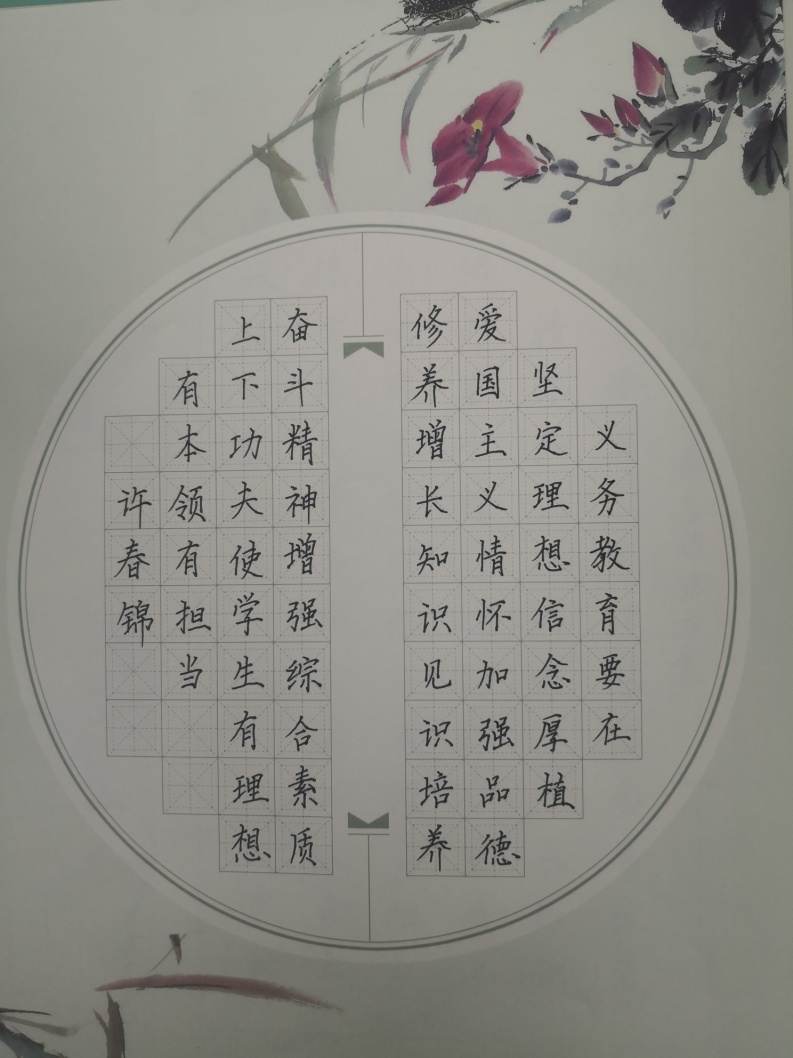 义务教育要在
坚定理想信念厚植
爱国主义情怀加强品德
修养增长知识见识培养
奋斗精神增强综合素质
上下功夫使学生有理想
有本领有担当
许春锦